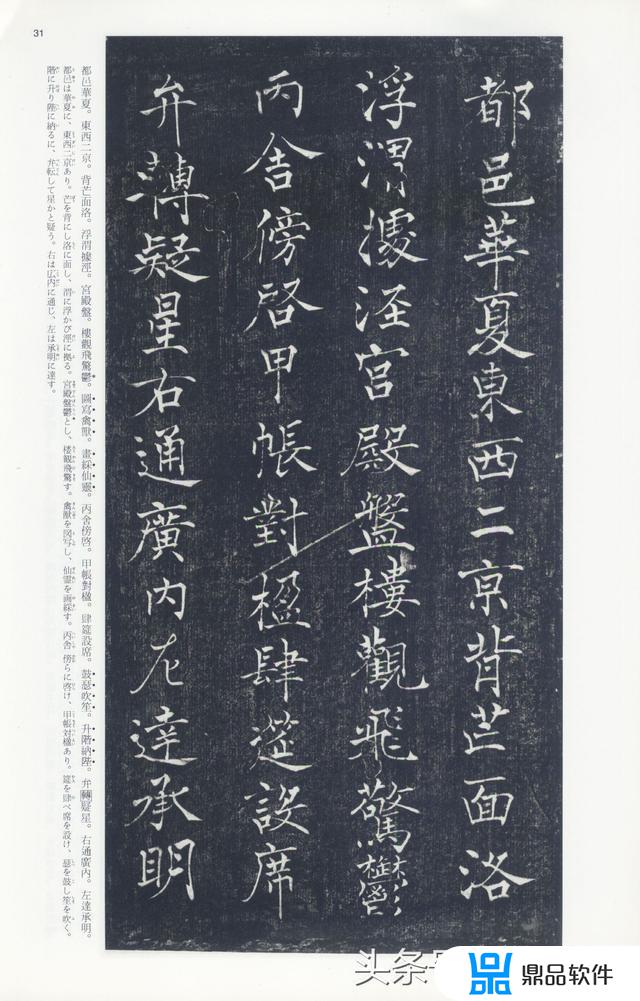 31
都邑華夏東西二京背芒面洛
浮渭據涇宮殿盤樓觀飛驚鬱
丙舍傍啓甲帳對楹肆莚設席
弁轉疑星右通廣内左達承明
都邑華夏。東西二京。背芒面洛。浮渭據涇。宮殿盤。樓觀飛驚鬱。圖寫禽獸。畫綵仙靈。丙舍傍啓。甲帳對楹。肆筵設席。鼓瑟吹笙。升階納陛。弁轉疑星。右通廣内。左達承明。
都邑は華夏に、東西二京あり。芒を背にし洛に面し、渭に浮かび涇に拠る。宮殿盤鬱とし、楼観飛驚す。禽獣を図写し、仙霊を画綵す。丙舎 傍らに啓け、甲帳対楹あり。筵を肆べ席を設け、瑟を鼓し笙を吹く。
階に升り陛に納るに、弁転して星かと疑う。右は広内に通じ、左は承明に達す。
头条
鼎品软件